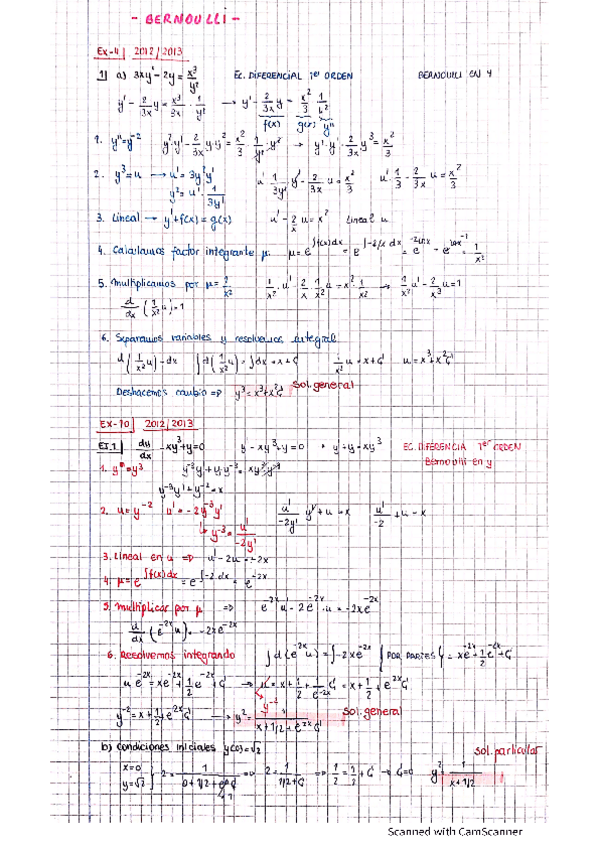 - BERNOULLI -
Ex-4 | 2012/2013
1] a) 3xy' - 2y = x³/y² Ec. DIFERENCIAL 1er ORDEN BERNOUILLI EN Y
y' - 2/3x y = x³/3x · 1/y² → y' - 2/3x y = x²/3 1/y²
f(x) g(x) yⁿ
1. yⁿ = y⁻² y²·y' - 2/3x y·y² = x²/3 · 1/y² · y² → y'·y² - 2/3x y³ = x²/3
2. y³ = u → u' = 3y²y' u' 1/3y' y' - 2/3x u = x²/3 u' 1/3 - 2/3x u = x²/3
y² = u' · 1/3y'
3. Lineal → y' + f(x) = g(x) u' - 2/x u = x² Lineal u
4. Calculamos factor integrante μ. μ = e^∫f(x)dx = e^∫-2/x dx = e^-2lnx = 1/x²
5. Multiplicamos por μ = 1/x² 1/x² · u' - 2/x · 1/x² u = x² · 1/x² → 1/x² u' - 2/x³ u = 1
d/dx (1/x² u) = 1
6. Separamos variables y resolvemos integral
d(1/x² u) = dx ∫d(1/x² u) = ∫dx = x + C 1/x² u = x + C u = x³ + x²C
Deshacemos cambio ⇒ y³ = x³ + x²C Sol. general
Ex-10 | 2012/2013
EJ.1 | dy/dx - xy³ + y = 0 y' - xy³ + y = 0 → y' + y = xy³ EC. DIFERENCIA 1er ORDEN
Bernouilli en y
1. yⁿ = y³ y⁻³y' + y·y⁻³ = xy³y⁻³
y⁻³y' + y⁻² = x
2. u = y⁻² u' = -2y⁻³y' u'/-2y' y' + u = x u'/-2 + u = x
↳ y⁻³ = u'/-2y'
3. Lineal en u ⇒ u' - 2u = -2x
4. μ = e^∫f(x)dx = e^∫-2 dx = e^-2x
5. Multiplicar por μ ⇒ e^-2x u' - 2e^-2x · u = -2xe^-2x
d/dx (e^-2x u) = -2xe^-2x
6. Resolvemos integrando ∫d(e^-2x u) = ∫-2xe^-2x {POR PARTES} = xe^-2x + 1/2 e^-2x + C
u e^-2x = xe^-2x + 1/2 e^-2x + C → u = x + 1/2 + 1/e^-2x C = x + 1/2 + e^2x C
y⁻²
y⁻² = x + 1/2 + e^2x C → y² = 1/x + 1/2 + e^2x C Sol. general
b) Condiciones iniciales y(0) = √2 Sol. particular
x=0
y=√2 } 2 = 1/0 + 1/2 + e⁰C ⇒ 2 = 1/1/2 + C ⇒ 1/2 = 1/2 + C → C=0 y² = 1/x + 1/2
Scanned with CamScanner